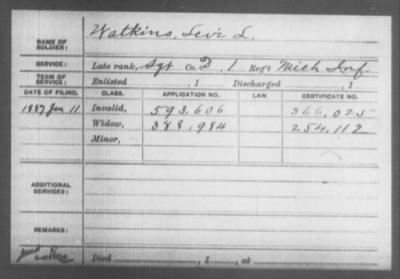 NAME OF SOLDIER: Watkins, Levi L.
SERVICE: Late rank, Sgt Co. D, 1 Reg't Mich Inf.
TERM OF SERVICE: Enlisted , 1 Discharged , 1
DATE OF FILING. CLASS. APPLICATION NO. LAW. CERTIFICATE NO.
1887 Jan 11 Invalid, 593,606 366,025
Widow, 388,984 254,112
Minor,
ADDITIONAL SERVICES:
REMARKS:
Died , 1 , at